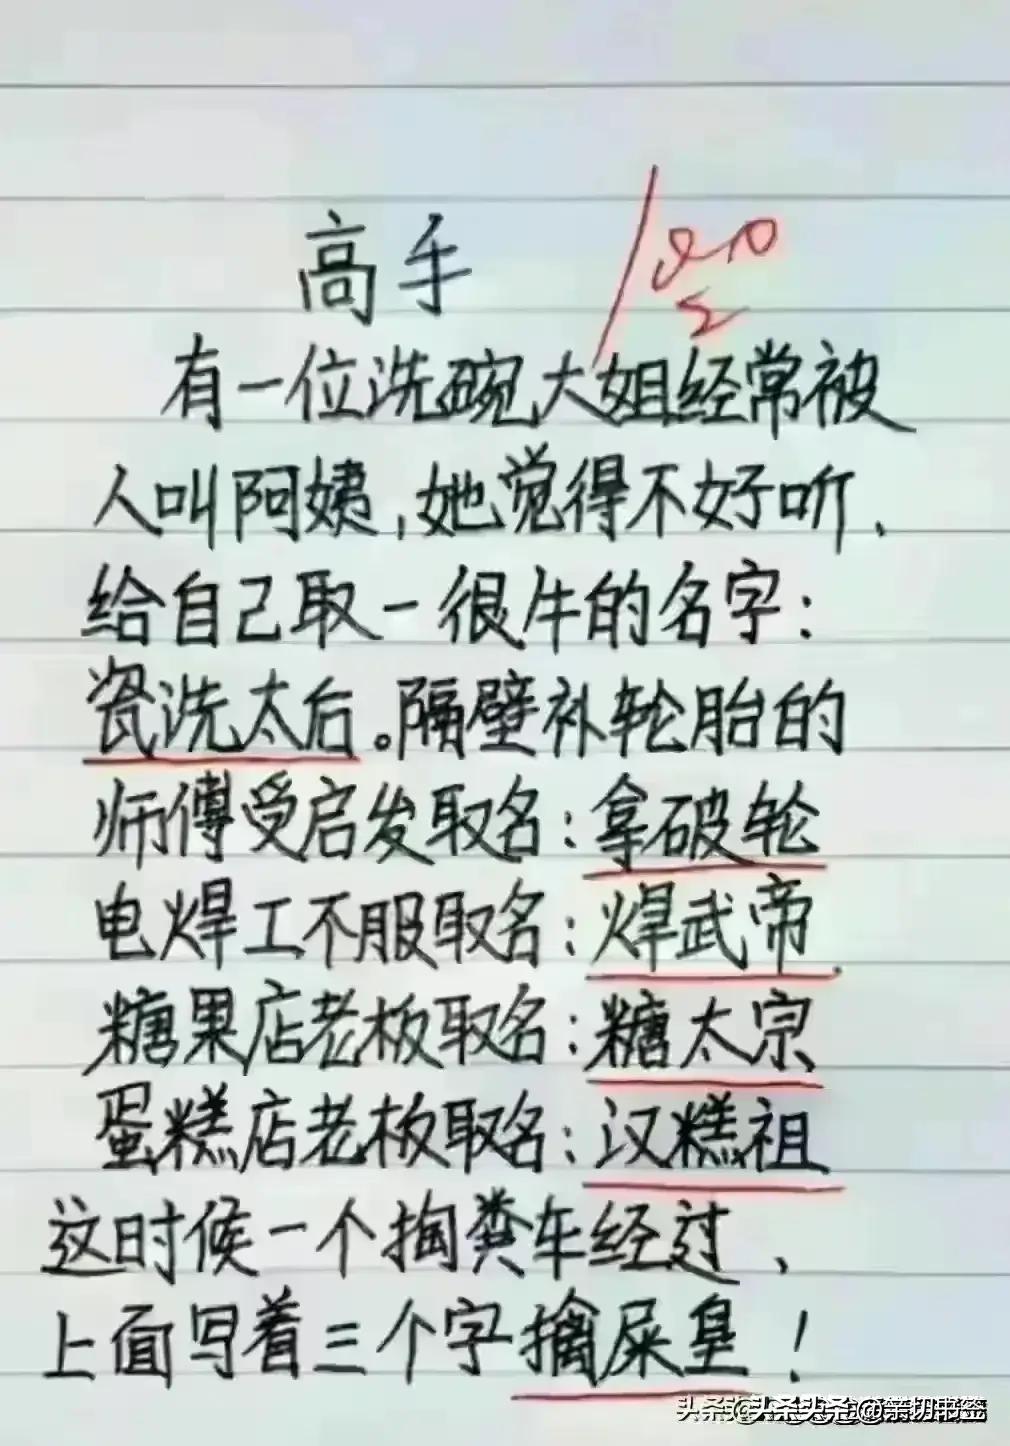 高手
100
有一位洗碗大姐经常被
人叫阿姨，她觉得不好听、
给自己取一很牛的名字：
瓷洗太后。隔壁补轮胎的
师傅受启发取名：拿破轮
电焊工不服取名：焊武帝.
糖果店老板取名：糖太宗
蛋糕店老板取名：汉糕祖
这时候一个掏粪车经过、
上面写着三个字擒屎皇！